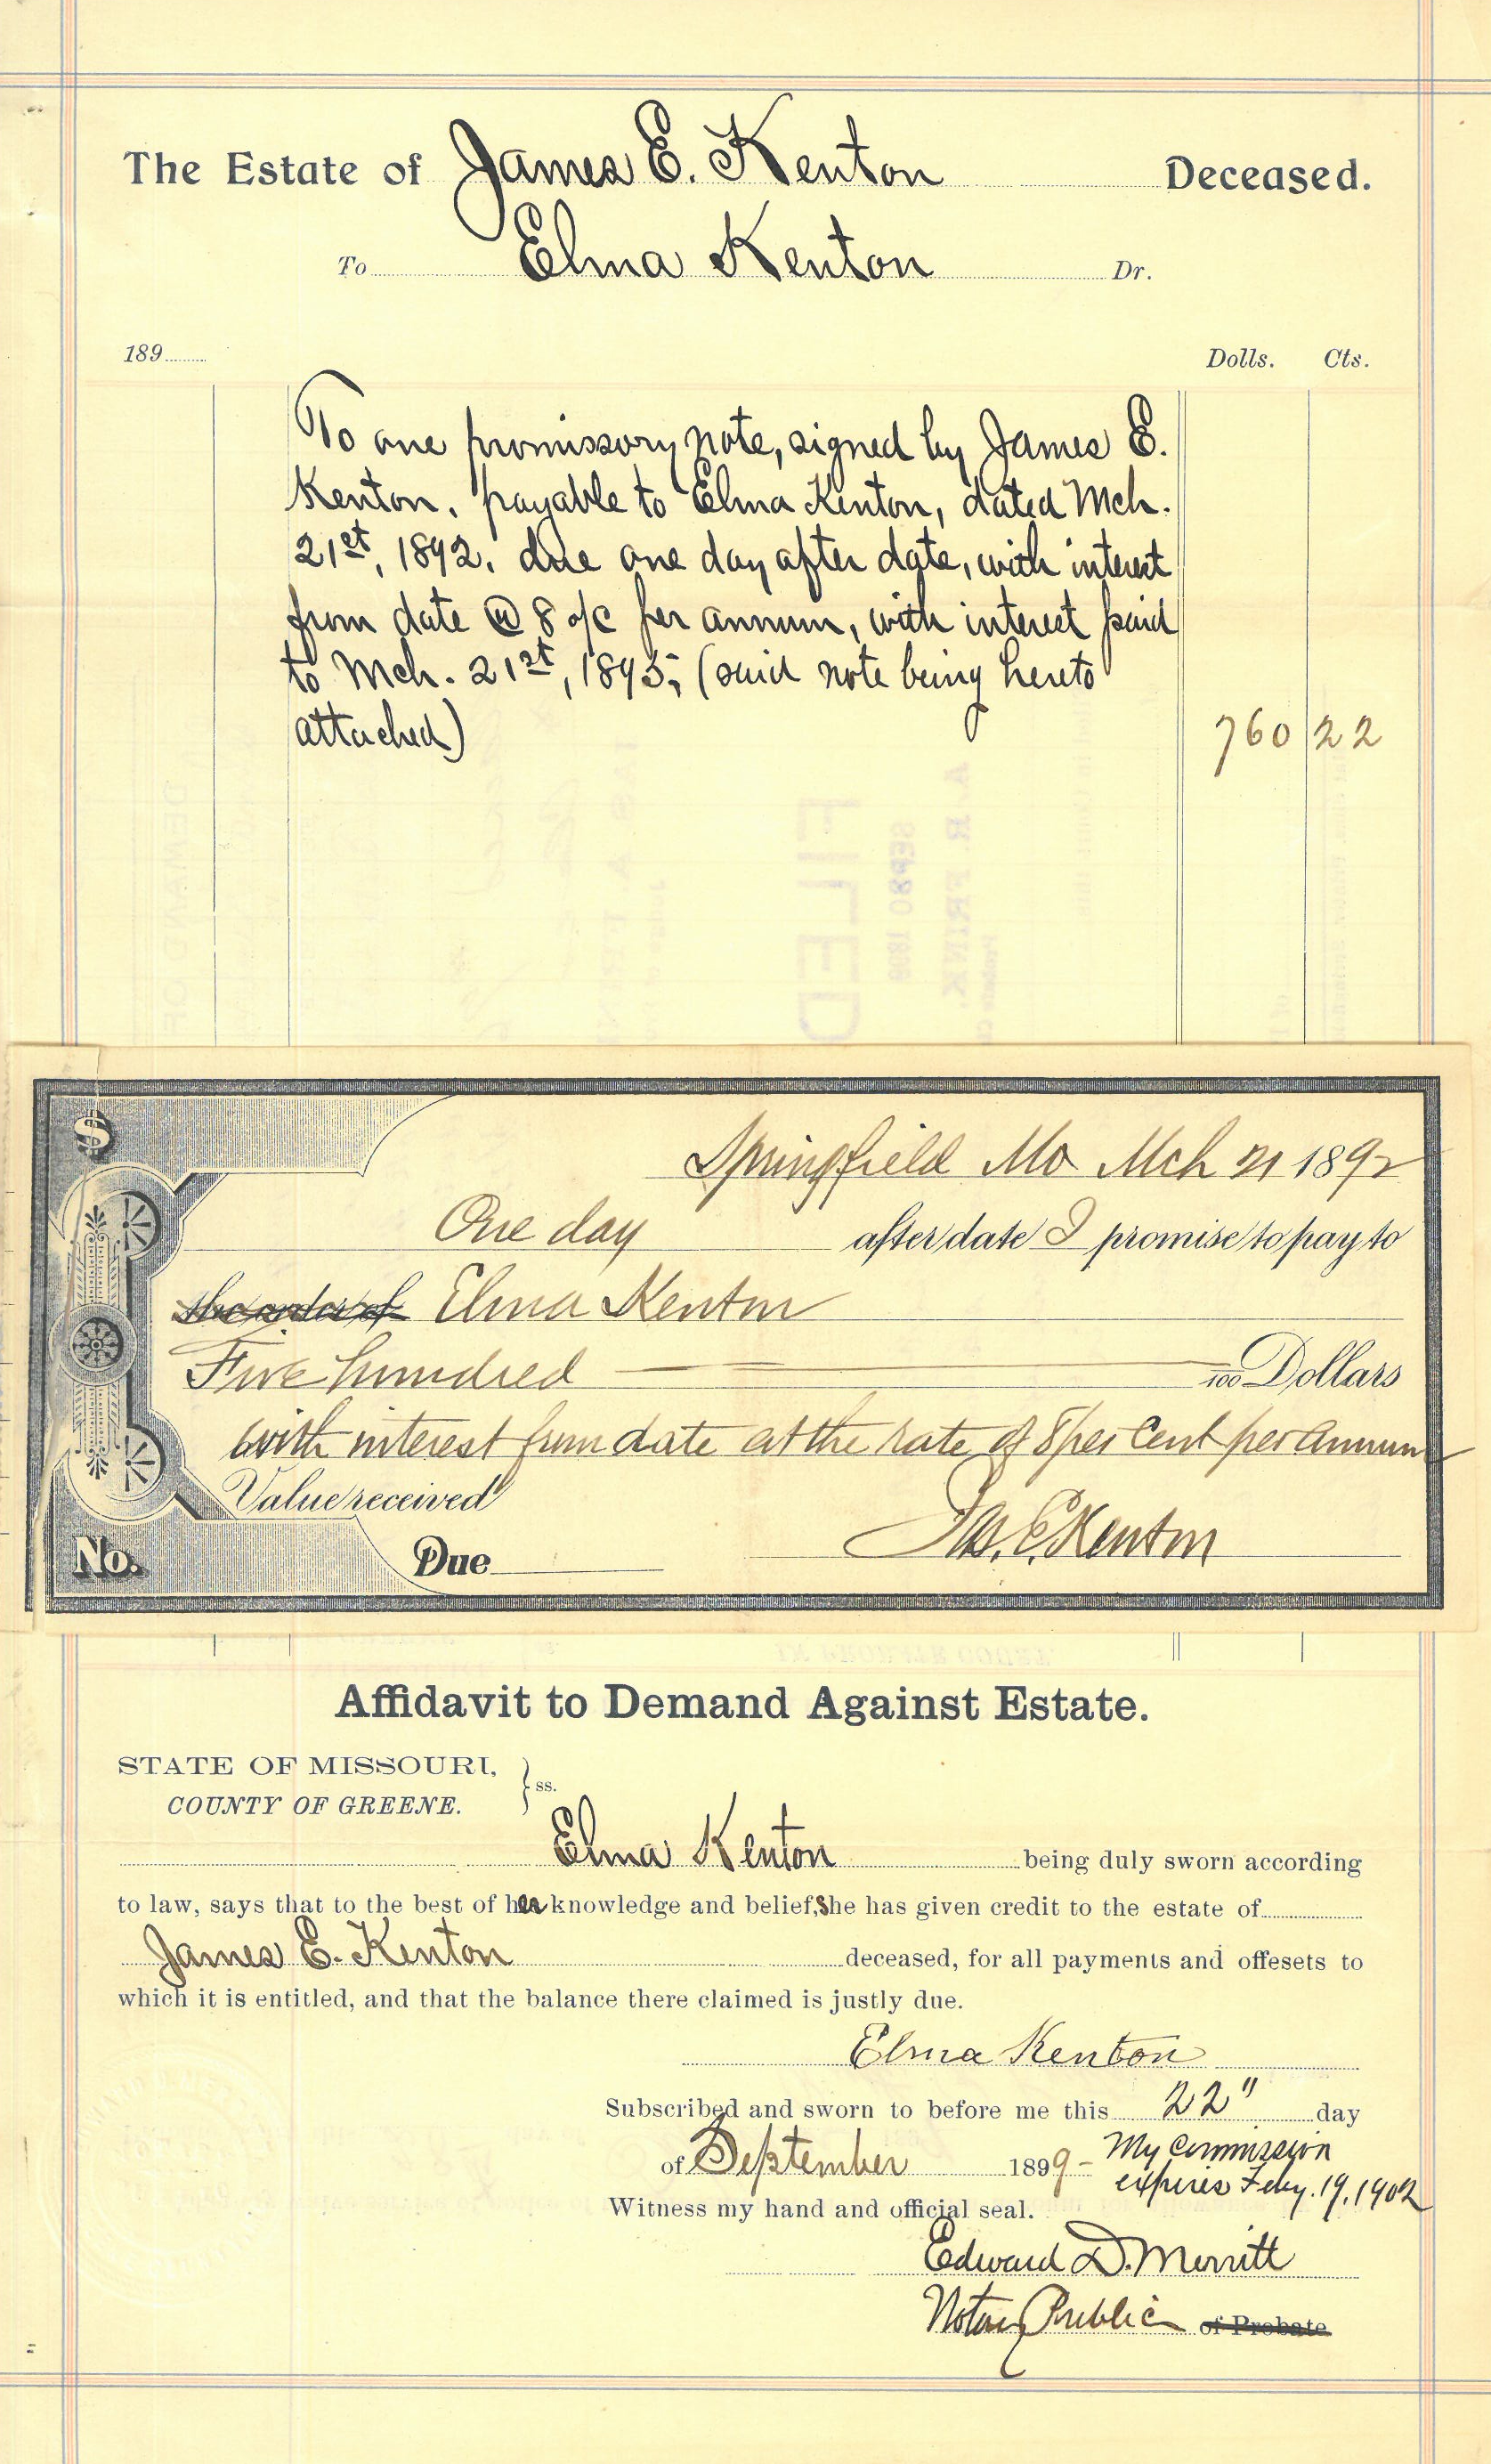 The Estate of James E. Kenton Deceased.
To Elma Kenton Dr.
189 Dolls. Cts.
To one promissory note, signed by James E.
Kenton, payable to Elma Kenton, dated Mch.
21st, 1892, due one day after date, with interest
from date @ 8 o/c per annum, with interest paid
to Mch. 21st, 1893; (said note being hereto
attached) 760 22
FILED
SEP 30 1899
A. R. FRINK,
$
Springfield Mo Mch 21 1892
One day after date I promise to pay to
the order of Elma Kenton
Five hundred /100 Dollars
with interest from date at the rate of 8 per cent per annum
Value received
Jas. E. Kenton
No. Due
Affidavit to Demand Against Estate.
STATE OF MISSOURI,
COUNTY OF GREENE. } ss.
Elma Kenton being duly sworn according
to law, says that to the best of her knowledge and belief, She has given credit to the estate of
James E. Kenton deceased, for all payments and offesets to
which it is entitled, and that the balance there claimed is justly due.
Elma Kenton
Subscribed and sworn to before me this 22" day
of September 1899 - My Commission
expires Feby. 19, 1902
Witness my hand and official seal.
Edward D. Merritt
Notary Public of Probate